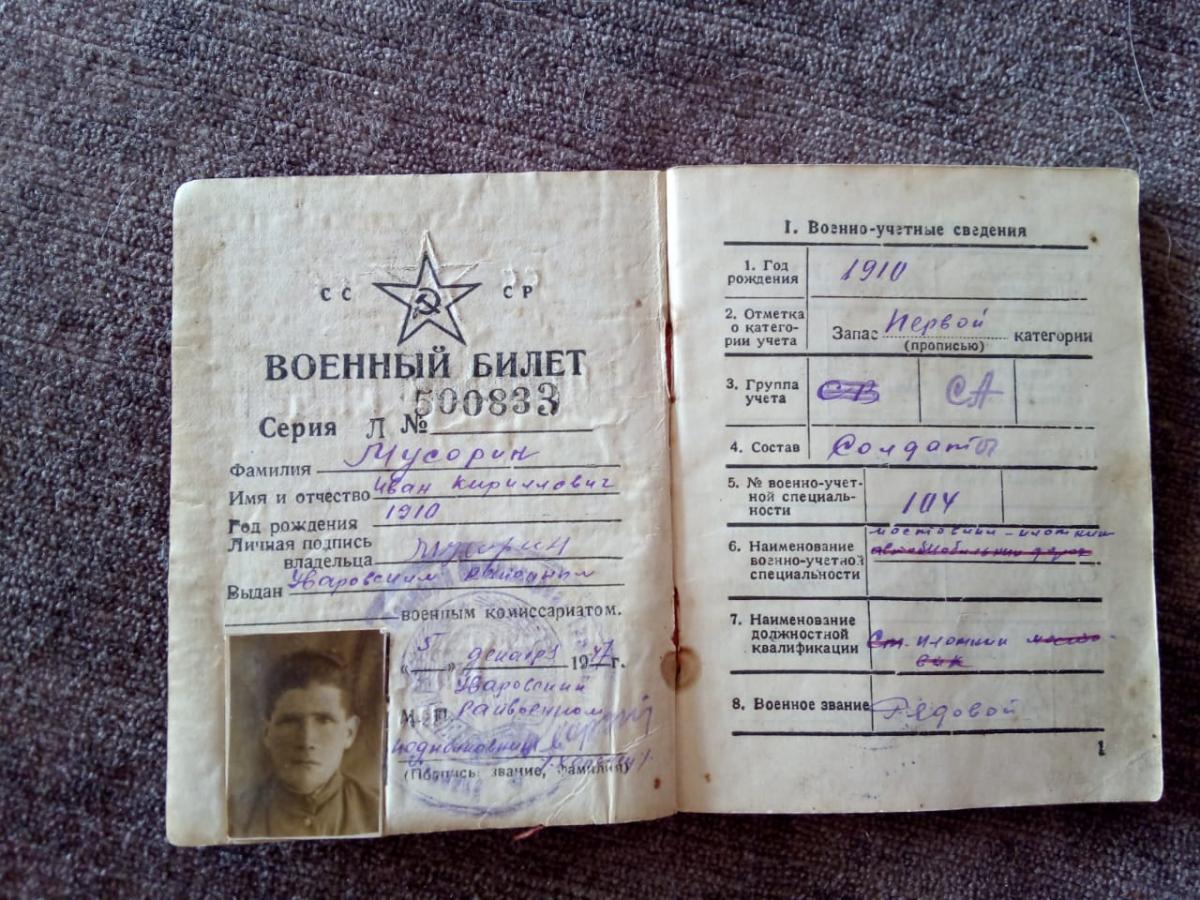 СС СР
ВОЕННЫЙ БИЛЕТ
500833
Серия Л №
Фамилия Мусорин
Имя и отчество Иван Кириллович
Год рождения 1910
Личная подпись
владельца Мусорин
Выдан Уваровским районным
военным комиссариатом.
«5» декабря 1947 г.
Уваровский
М. П. райвоенком
подполковник
(Подпись, звание, фамилия)
I. Военно-учетные сведения
1. Год
рождения 1910
2. Отметка
о катего-
рии учета
Запас Первой категории
(прописью)
3. Группа
учета СВ СА
4. Состав Солдаты
5. № военно-учет-
ной специаль-
ности 104
6. Наименование
военно-учетной
специальности
мостовики-плотники
автомобильных дорог
7. Наименование
должностной
квалификации
Ст. плотник мосто-
вик
8. Военное звание Рядовой
1